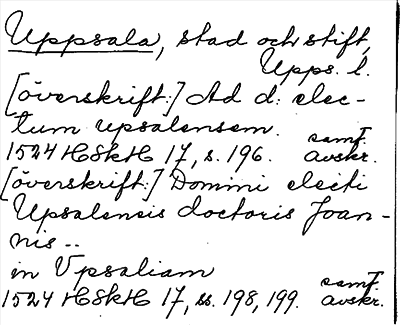 Uppsala, stad och stift,
Upps. l.
[överskrift:] Ad d: elec-
tum upsalensem.
1524 HSkH 17, s. 196. samt. avskr.
[överskrift:] Domini electi
Upsalensis doctoris Joan-
nis --
in Vpsaliam
1524 HSkH 17, ss. 198, 199. samt. avskr.